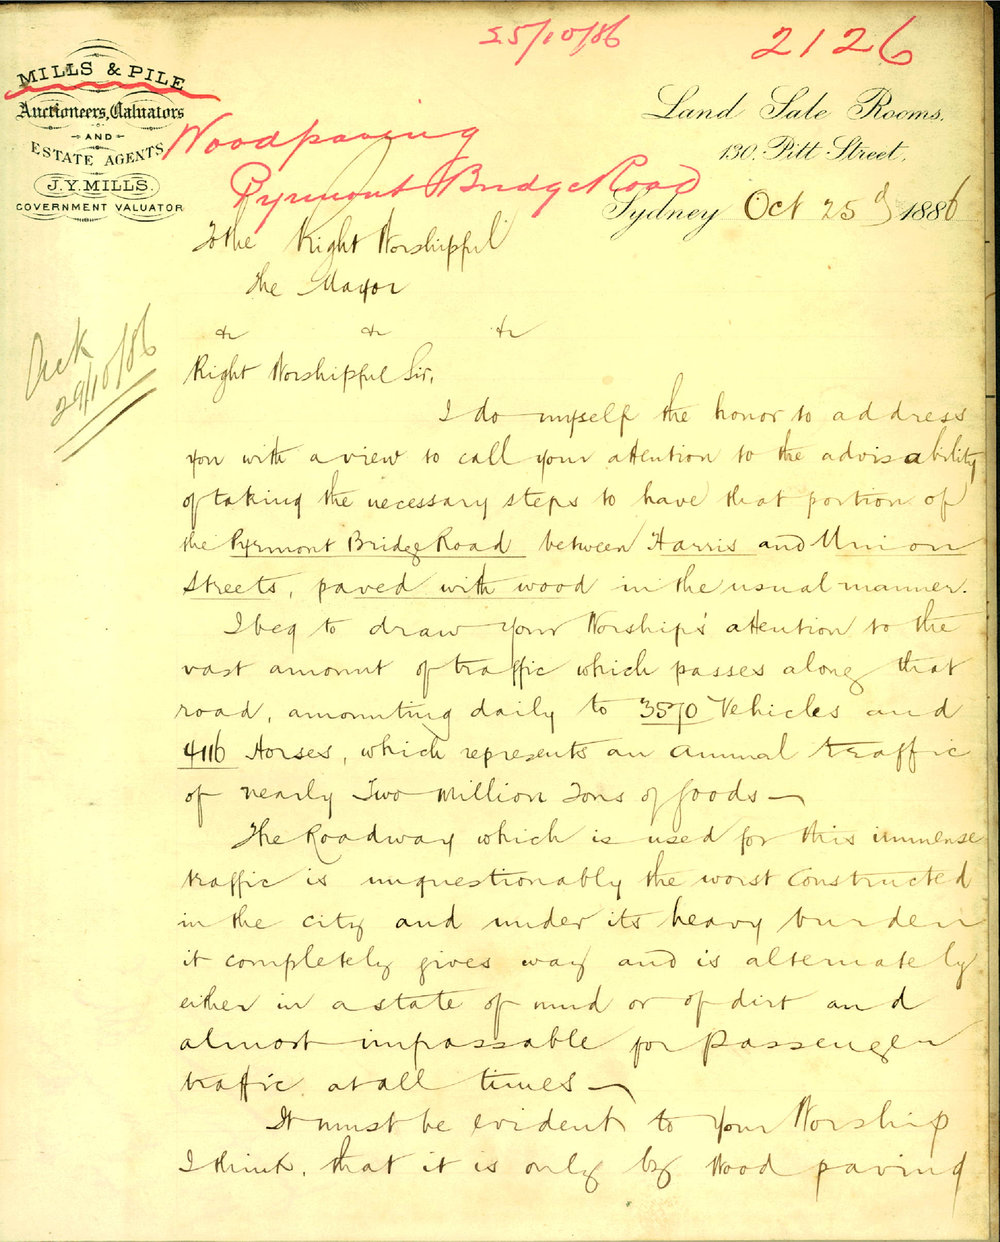 25/10/86
2126
MILLS & PILE
Auctioneers, Valuators
AND
ESTATE AGENTS.
J.Y. MILLS.
GOVERNMENT VALUATOR
Land Sale Rooms.
130. Pitt Street.
Woodpaving
Pyrmont Bridge Road
Sydney Oct 25th 1886
To the Right Worshipful
The Mayor
&c &c &c
Ack
29/10/86
Right Worshipful Sir,
I do myself the honor to address
you with a view to call your attention to the advisability
of taking the necessary steps to have that portion of
the Pyrmont Bridge Road between Harris and Union
Streets, paved with wood in the usual manner.
I beg to draw your Worship's attention to the
vast amount of traffic which passes along that
road, amounting daily to 3570 Vehicles and
4116 Horses, which represents an annual traffic
of nearly Two Million Tons of Goods—
The Roadway which is used for this immense
traffic is unquestionably the worst constructed
in the city and under its heavy burden
it completely gives way and is alternately
either in a state of mud or of dirt and
almost impassable for passenger
traffic at all times—
It must be evident to your Worship
I think, that it is only by Wood paving